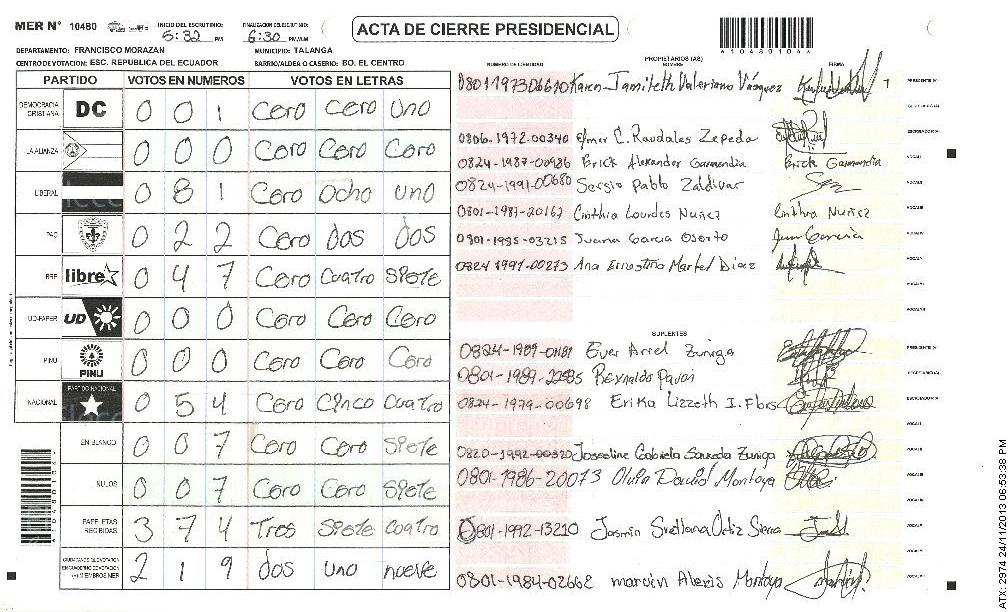 MER N° 10480 INICIO DEL ESCRUTINIO: 5:32 PM FINALIZACION ESCRUTINIO: 6:30 PM/AM
ACTA DE CIERRE PRESIDENCIAL
10480104
DEPARTAMENTO: FRANCISCO MORAZAN MUNICIPIO: TALANGA
CENTRO DE VOTACION: ESC. REPUBLICA DEL ECUADOR BARRIO/ALDEA O CASERIO: BO. EL CENTRO
PARTIDO VOTOS EN NUMEROS VOTOS EN LETRAS
DEMOCRACIA CRISTIANA DC 0 0 1 Cero Cero Uno
LA ALIANZA 0 0 0 Cero Cero Cero
LIBERAL 0 8 1 Cero Ocho Uno
PAC 0 2 2 Cero Dos Dos
libre 0 4 7 Cero Cuatro Siete
UD-FAPER UD 0 0 0 Cero Cero Cero
PINU PINU 0 0 0 Cero Cero Cero
NACIONAL PARTIDO NACIONAL 0 5 4 Cero Cinco Cuatro
EN BLANCO 0 0 7 Cero Cero Siete
NULOS 0 0 7 Cero Cero Siete
PAPELETAS RECIBIDAS 3 7 4 Tres Siete Cuatro
CIUDADANOS QUE VOTARON EN CUADERNO DE VOTACION (+) MIEMBROS MER 2 1 9 dos uno nueve
NUMERO DE IDENTIDAD PROPIETARIOS (AS) FIRMA
0801197306610 Karen Jamileth Valeriano Vásquez PRESIDENTE (A)
SECRETARIO (A)
0806-1972-00340 Elmer C. Raudales Zepeda ESCRUTADOR (A)
0824-1987-00986 Brick Alexander Garmendia Brick Garmendia VOCAL I
0824-1991-00680 Sergio Pablo Zaldivar VOCAL II
0801-1987-20167 Cinthia Lourdes Nuñez Cinthia Nuñez VOCAL III
0801-1985-03215 Juana Garcia Osorto Juana Garcia VOCAL IV
0824 1991-00273 Ana Ernestina Martel Diaz
SUPLENTES
0824-1989-01181 Ever Ariel Zuniga PRESIDENTE (A)
0801-1989-22585 Reynaldo Pavon SECRETARIO (A)
0824-1979-00698 Erika Lizzeth I. Flores ESCRUTADOR (A)
0820-1992-00320 Josseline Gabriela Zuniga
0801-1986-20073 Olvin David Montoya
0801-1992-13210 Jasmin Svetlana Ortiz Sierra
0801-1984-02662 marvin Alexis Montoya
ATX: 2974 24/11/2013 06:53:38 PM